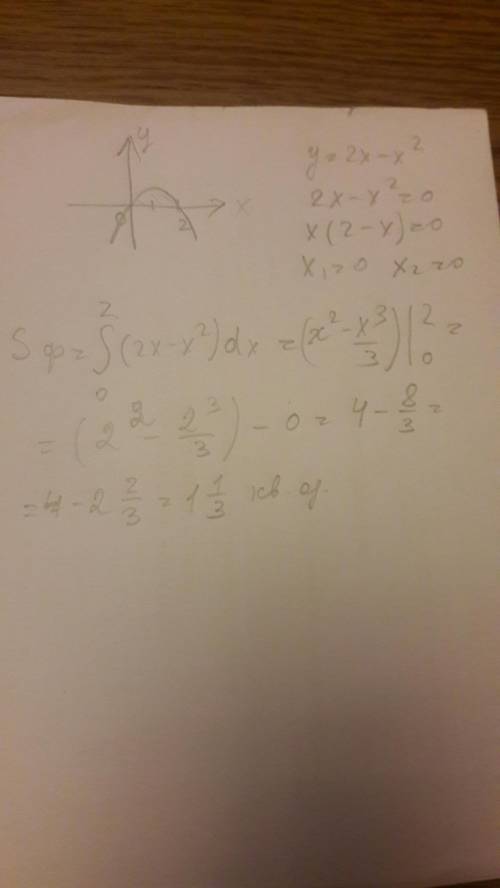 y
x
0 1 2
y = 2x - x²
2x - x² = 0
x(2 - x) = 0
x₁ = 0 x₂ = 0
Sф = ∫₀² (2x - x²) dx = (x² - x³/3) |₀² =
= (2² - 2³/3) - 0 = 4 - 8/3 =
= 4 - 2 2/3 = 1 1/3 кв. од.